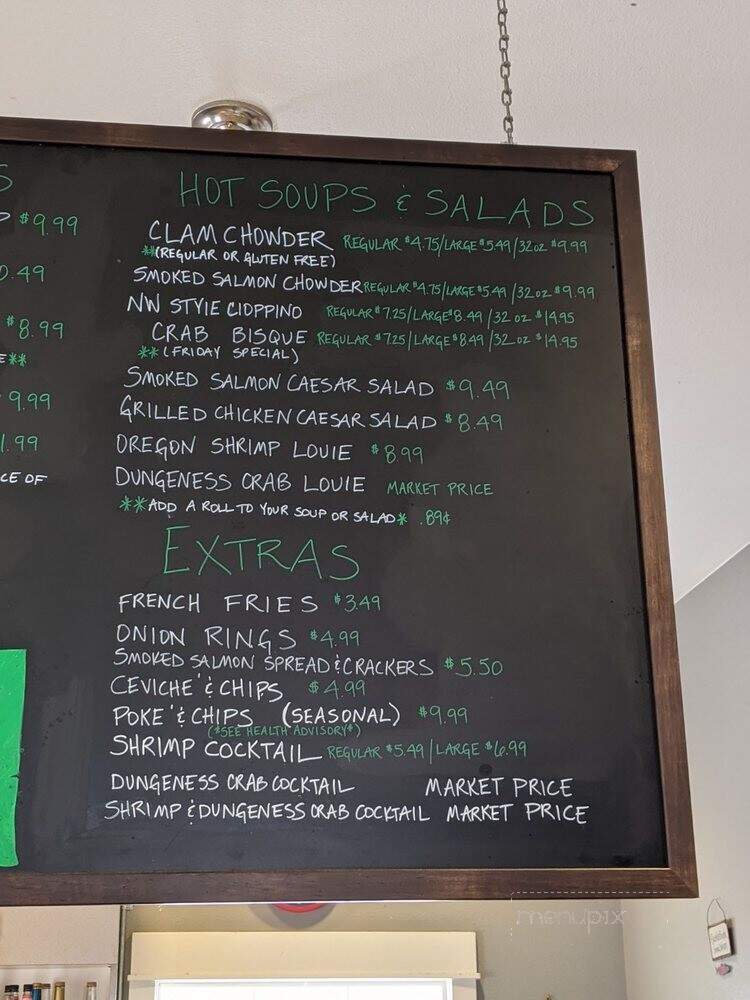 S
$9.99
0.49
$8.99
E**
9.99
1.99
CE OF
HOT SOUPS & SALADS
CLAM CHOWDER REGULAR $4.75/LARGE $5.49/32oz $9.99
**(REGULAR OR GLUTEN FREE)
SMOKED SALMON CHOWDER REGULAR $4.75/LARGE $5.49/32oz $9.99
NW STYlE CIOPPINO REGULAR $7.25/LARGE $8.49/32 oz $14.95
CRAB BISQUE REGULAR $725/LARGE $8.49/32 oz $14.95
**(FRIDAY SPECIAL)
SMOKED SALMON CAESAR SALAD $9.49
GRILLED CHICKEN CAESAR SALAD $8.49
OREGON SHRIMP LOUIE $8.99
DUNGENESS CRAB LOUIE MARKET PRICE
**ADD A ROLL TO YOUR SOUP OR SALAD* .89¢
EXTRAS
FRENCH FRIES $3.49
ONION RINGS $4.99
SMOKED SALMON SPREAD & CRACKERS $5.50
CEVICHE' & CHIPS $4.99
POKE' & CHIPS (SEASONAL) $9.99
(*SEE HEALTH ADVISORY*)
SHRIMP COCKTAIL REGULAR $5.49/LARGE $6.99
DUNGENESS CRAB COCKTAIL MARKET PRICE
SHRIMP & DUNGENESS CRAB COCKTAIL MARKET PRICE
menupix